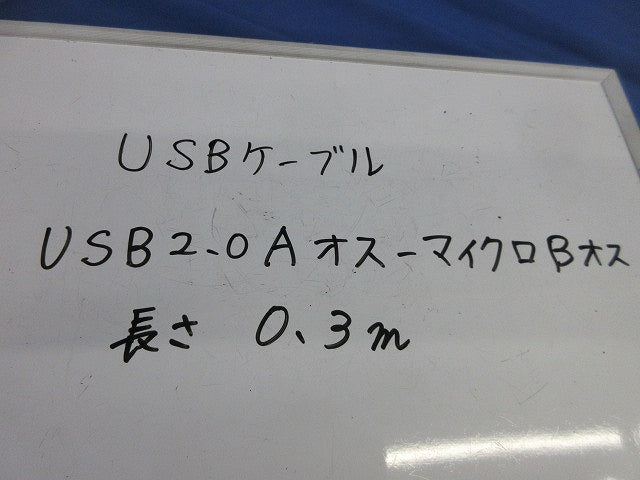 USBケーブル
USB2.0Aオス-マイクロBオス
長さ 0.3m